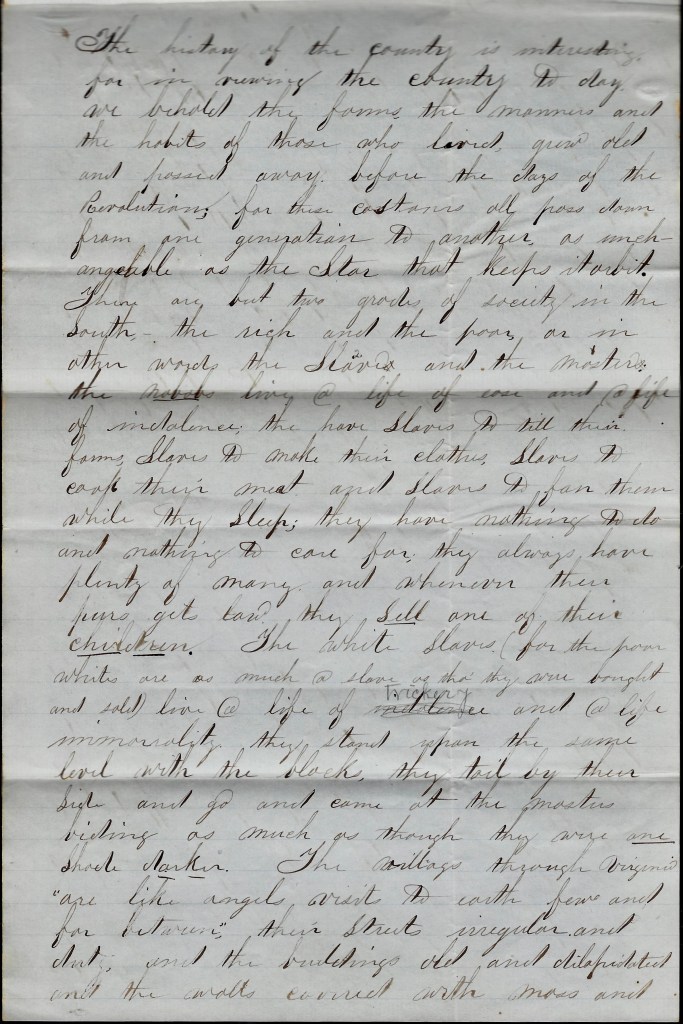 The history of the county is interesting,
for in viewing the county to day.
we behold the forms, the manners and
the habits of those who lived, grew old
and passed away. before the days of the
Revolution; for these costoms all pass down
from one generation to another, as unch-
angeable as the Star that keeps its orbit.
There are but two grades of society in the
South, - the rich and the poor, or in
other words the "Slaves" and the "masters";
the nabobs live a life of ease and a life
of indolence; the have Slaves to till their
farms, Slaves to make their clothes, Slaves to
cook their meat and Slaves to fan them
while they Sleep; they have nothing to do
and nothing to care for; they always have
plenty of money and whenever their
purs gets low they Sell one of their
children. The white Slaves, (for the poor
whites are as much a slave as tho' they were bought
and sold) live a life of indolence Trickery and a life
immorality they stand upon the same
level with the blacks, they toil by their
Side and go and come at the masters
biding as much as though they were one
Shade darker. The villags through Virginia
"are like angels visits to earth few and
far between", their Streets irregular and
dirty, and the buildings old and dilapidated
and the walls covered with moss and